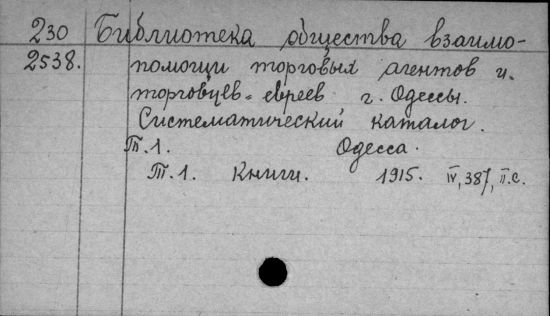 230 Библиотека общества взаимо-
2538. помощи торговых агентов и.
торговцев-евреев г. Одессы.
Систематический каталог.
Т.1. Одесса.
Т.1. Книги. 1915. IV, 387, II с.